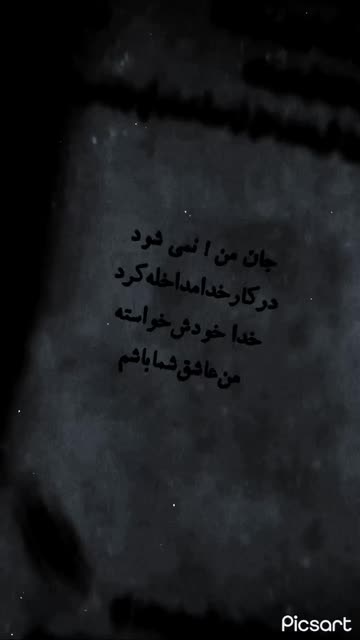 جان من ! نمی شود
در کار خدا مداخله کرد
خدا خودش خواسته
من عاشق شما باشم
Picsart